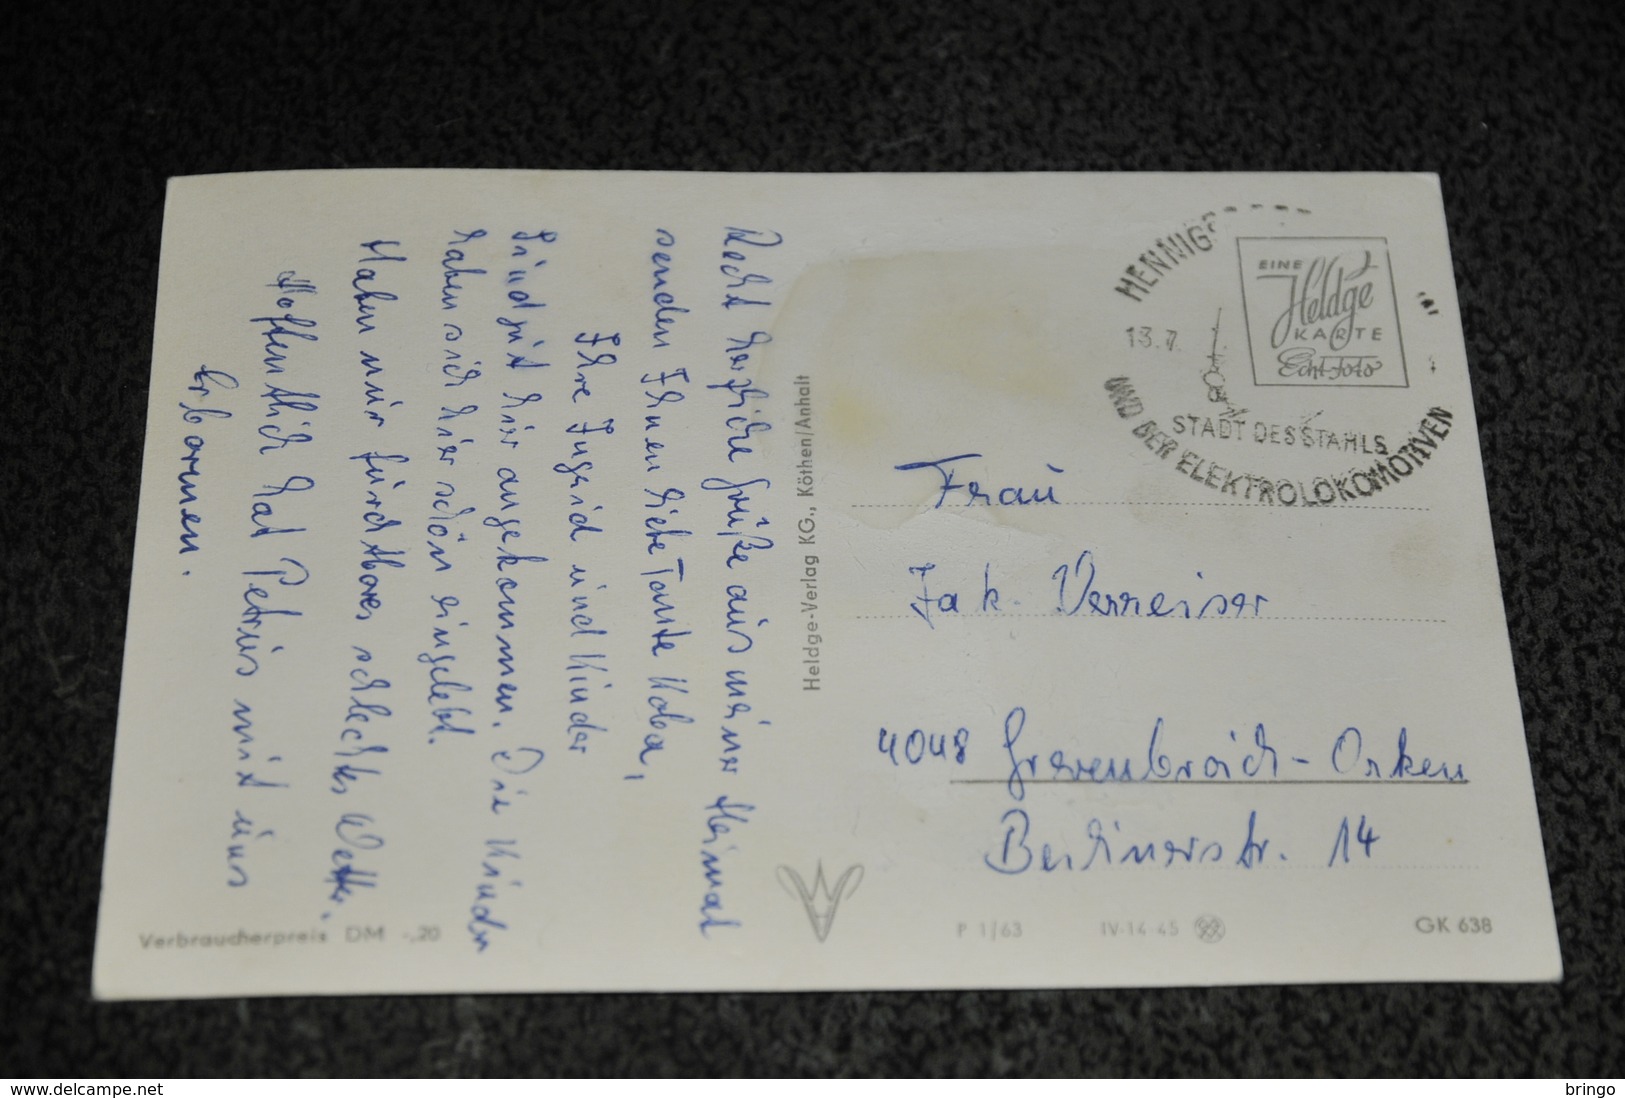 Recht herzliche Grüße aus meiner Heimat
senden Ihnen liebe Tante Kola,
Ihre Ingrid und Kinder
Sind gut hier angekommen. Die Kinder
haben sich hier schön eingelebt.
Haben nur furchtbares schlechtes Wetter.
Hoffentlich hat Petrus mit uns
Erbarmen.
Verbraucherpreis DM -,20
Heldge-Verlag KG., Köthen/Anhalt
HENNIGS
13.7.
STADT DES STAHLS
UND DER ELEKTROLOKOMOTIVEN
EINE
Heldge
KARTE
Echt-Foto
Frau
Jak. Verreiser
4048 Grevenbroich-Orken
Berlinerstr. 14
P 1/63 IV-14-45 GK 638
www.delcampe.net
bringo